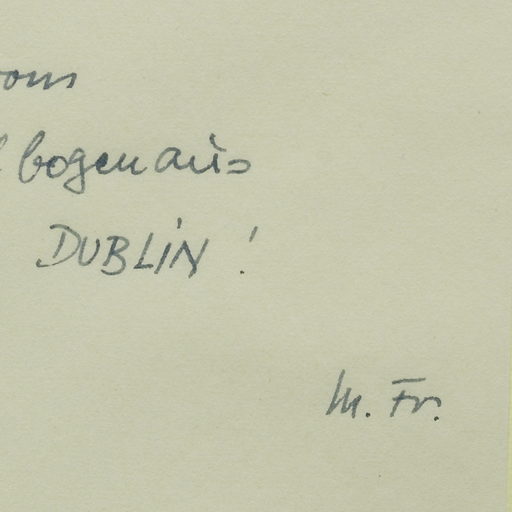 bogen aus
DUBLIN!
M. Fr.